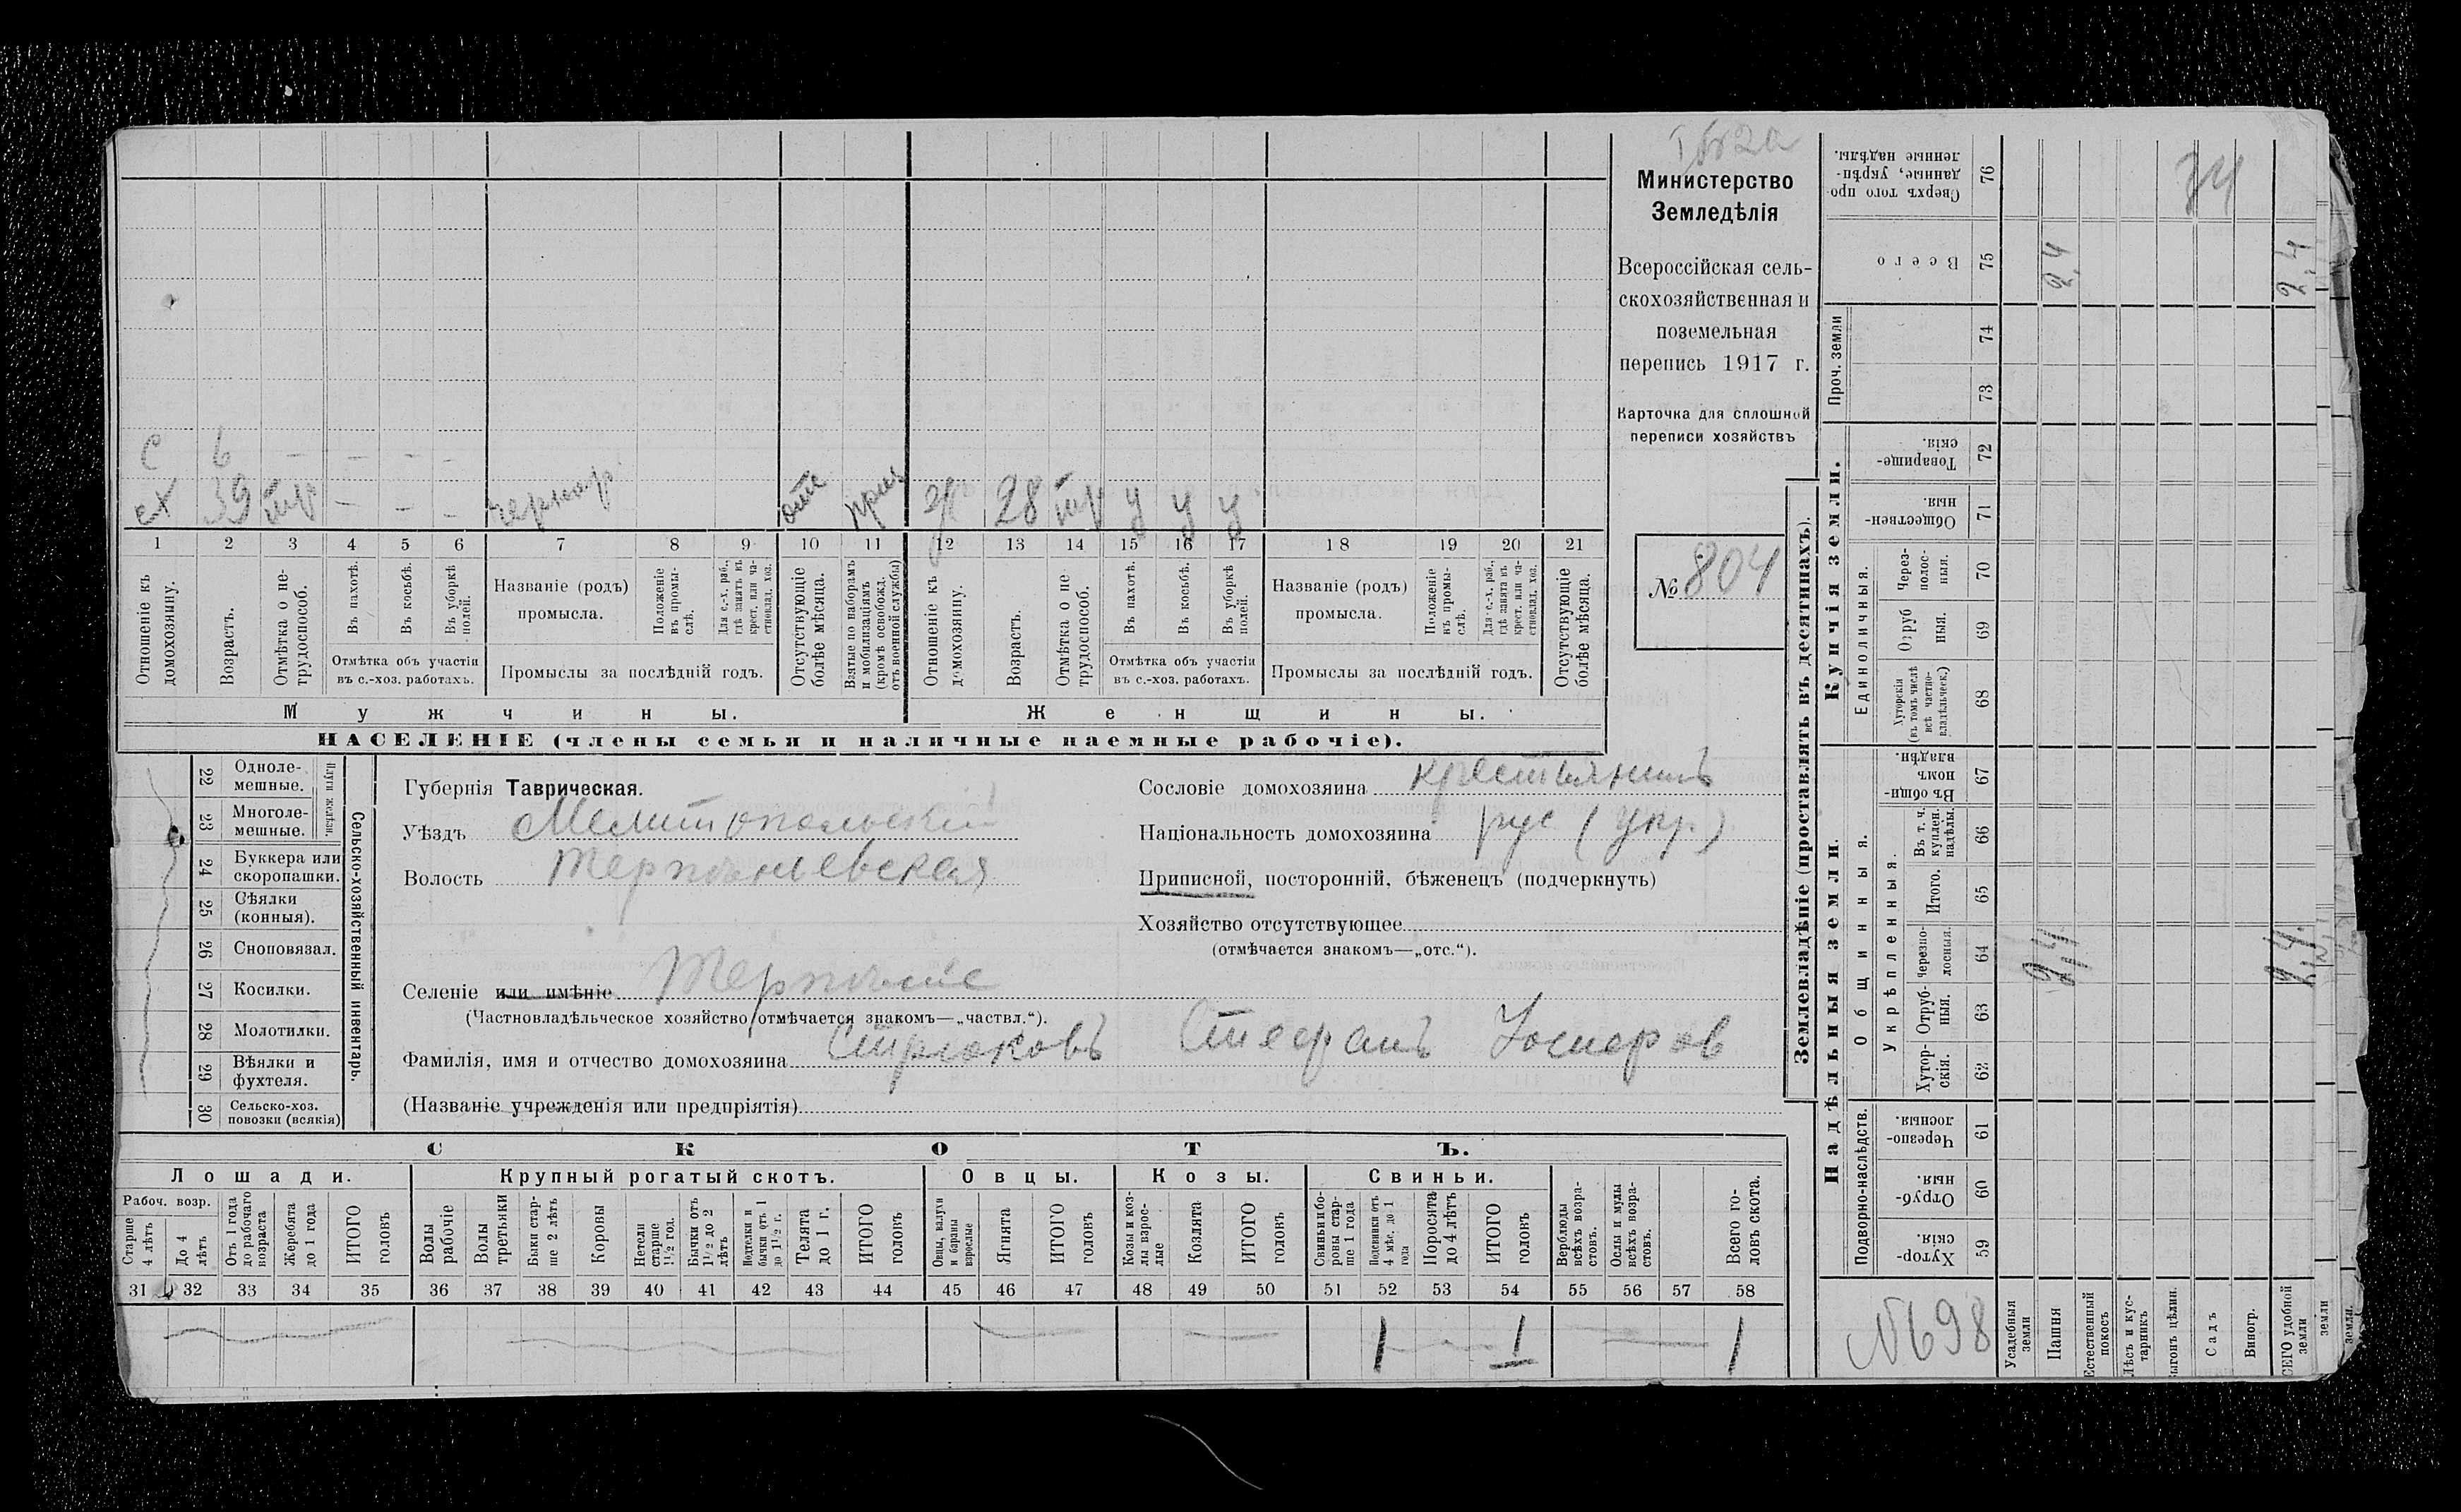 Министерство
Земледѣлія
Всероссійская сель-
скохозяйственная и
поземельная
перепись 1917 г.
Карточка для сплошной
переписи хозяйствъ
№ 804
с 6 – – – –
39 тр – – – отс 28 тр у у у
1 2 3 4 5 6 7 8 9 10 11 12 13 14 15 16 17 18 19 20 21
Отношеніе къ
домохозяину.
Возрастъ.
Отмѣтка о не-
трудоспособ.
Въ пахотѣ.
Въ косьбѣ.
Въ уборкѣ
полей.
Отмѣтка объ участіи
въ с.-хоз. работахъ.
Названіе (родъ)
промысла.
Положеніе
въ промы-
слѣ.
Для с.-х. раб.,
гдѣ занятъ въ
крест. или ча-
стновлад. хоз.
Промыслы за послѣдній годъ.
Отсутствующіе
болѣе мѣсяца.
Взятые по наборамъ
и мобилизаціямъ
(кромѣ освобожд.
отъ военной службы)
Отношеніе къ
домохозяину.
Возрастъ.
Отмѣтка о не
трудоспособ.
Въ пахотѣ.
Въ косьбѣ.
Въ уборкѣ
полей.
Отмѣтка объ участіи
въ с.-хоз. работахъ.
Названіе (родъ)
промысла.
Положеніе
въ промы-
слѣ.
Для с.-х. раб.,
гдѣ занята въ
крест. или ча-
стновлад. хоз.
Промыслы за послѣдній годъ.
Отсутствующіе
болѣе мѣсяца.
Мужчины.
Женщины.
НАСЕЛЕНІЕ (члены семьи и наличные наемные рабочіе).
22 Одноле-
мешные.
23 Многоле-
мешные.
Плуги желѣзн.
24 Буккера или
скоропашки.
25 Сѣялки
(конныя).
26 Сноповязал.
27 Косилки.
28 Молотилки.
29 Вѣялки и
фухтеля.
30 Сельско-хоз.
повозки (всякія)
Сельско-хозяйственный инвентарь.
Губернія Таврическая.
Уѣздъ Мелитопольскій
Волость Терпѣніевская
Селеніе или имѣніе Терпѣніе
(Частновладѣльческое хозяйство отмѣчается знакомъ—„частвл.“).
Фамилія, имя и отчество домохозяина Стрюковъ Стефанъ
(Названіе учрежденія или предпріятія)
Сословіе домохозяина крестьянинъ
Національность домохозяина рус (укр.)
Приписной, посторонній, бѣженецъ (подчеркнуть)
Хозяйство отсутствующее
(отмѣчается знакомъ—„отс.“).
СКОТЪ.
Лошади.
Крупный рогатый скотъ.
Овцы.
Козы.
Свиньи.
Рабоч. возр.
Старше
4 лѣтъ
До 4
лѣтъ
Отъ 1 года
до рабочаго
возраста
Жеребята
до 1 года
ИТОГО
головъ
Волы
рабочіе
Волы
третьяки
Быки стар-
ше 2 лѣтъ
Коровы
Нетели
старше
1½ год.
Бычки отъ
1½ до 2
лѣтъ
Подтелки и
бычки отъ 1
до 1½ г.
Телята
до 1 г.
ИТОГО
головъ
Овцы, валухи
и бараны
взрослые
Ягнята
ИТОГО
головъ
Козы и коз-
лы взрос-
лые
Козлята
ИТОГО
головъ
Свиньи и бо-
ровы стар-
ше 1 года
Подсвинки отъ
4 мѣс. до 1
года
Поросята
до 4 лѣтъ
ИТОГО
головъ
Верблюды
всѣхъ возра-
стовъ.
Ослы и мулы
всѣхъ возра-
стовъ.
Всего го-
ловъ скота.
31 32 33 34 35 36 37 38 39 40 41 42 43 44 45 46 47 48 49 50 51 52 53 54 55 56 57 58
1 1 1
Землевладѣніе (проставлять въ десятинахъ).
Сверхъ того про-
данные, укрѣп-
ленные надѣлы.
76
34
Всего
75
2,4 2,4
Проч. земли
74
73
Купчія земли.
Товарище-
скія.
72
Обществен-
ныя.
71
Единоличныя.
Через-
полос-
ныя.
70
Отруб
ныя.
69
Хуторскія
(въ томъ числѣ
всѣ частно-
владѣльческ.)
68
Надѣльныя земли.
Общинныя.
Въ общи-
номъ
владѣн.
67
Укрѣпленныя.
Въ т. ч.
куплен.
надѣлы.
66
Итого.
65
Черезпо-
лосныя.
64
2,4 2,4
Отруб-
ныя.
63
Хутор-
скія.
62
Подворно-наслѣдств.
Черезпо-
лосныя.
61
Отруб-
ныя.
60
Хутор-
скія.
59
№698
Усадебныя
земли
Пашня
Естественный
покосъ
Лѣсъ и кус-
тарникъ
Выгонъ цѣлин.
Садъ
Виногр.
ВСЕГО удобной
земли
земли
земли.